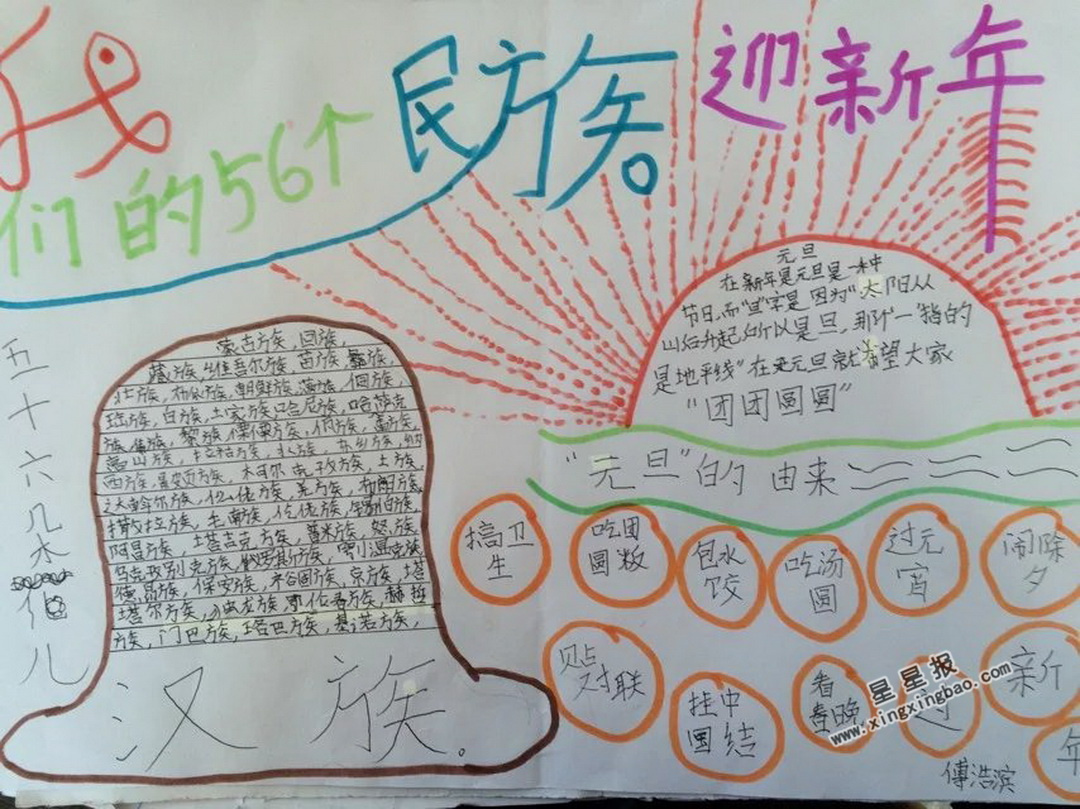 我
们的56个
民族。
迎新年
元旦
在新年是元旦是一种
节日,而"旦"字是因为"太阳从
山后升起,所以是旦,那个"一"指的
是地平线"在元旦就希望大家
"团团圆圆"
"元旦"的由来
五十六
蒙古族,回族,
藏族,维吾尔族,苗族,彝族,
壮族,布依族,朝鲜族,满族,侗族,
瑶族,白族,土家族,哈尼族,哈萨克
族,傣族,黎族,傈僳族,佤族,畲族,
高山族,拉祜族,水族,东乡族,纳
西族,景颇族,柯尔克孜族,土族,
达斡尔族,仫佬族,羌族,布朗族,
撒拉族,毛南族,仡佬族,锡伯族,
阿昌族,塔吉克族,普米族,怒族,
乌孜别克族,俄罗斯族,鄂温克族,
德昂族,保安族,裕固族,京族,塔
塔尔族,独龙族,鄂伦春族,赫哲
族,门巴族,珞巴族,基诺族,
汉族。
搞卫生
吃团圆饭
包水饺
吃汤圆
过元宵
闹除夕
贴对联
挂中国结
看春晚
过
新
年
傅浩滨
星星报
www.xingxingbao.com